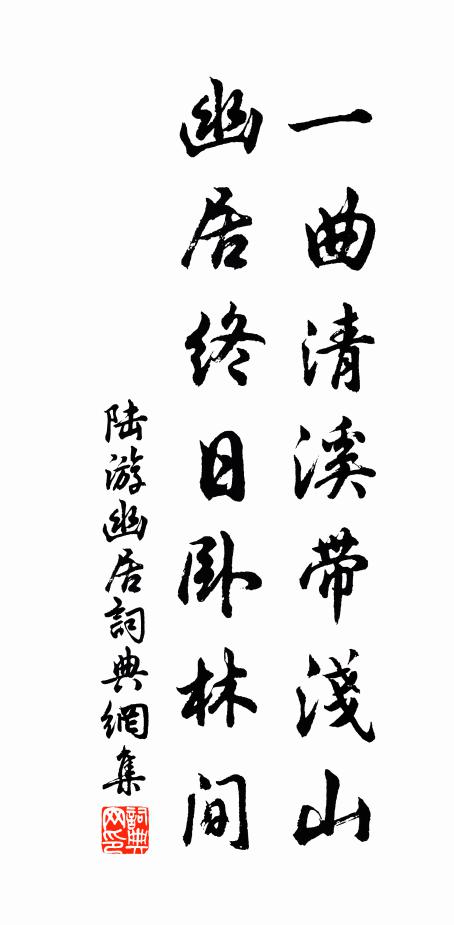 一曲清溪带淺山
幽居终日卧林间
陆游幽居詞典網集
詞典
网印